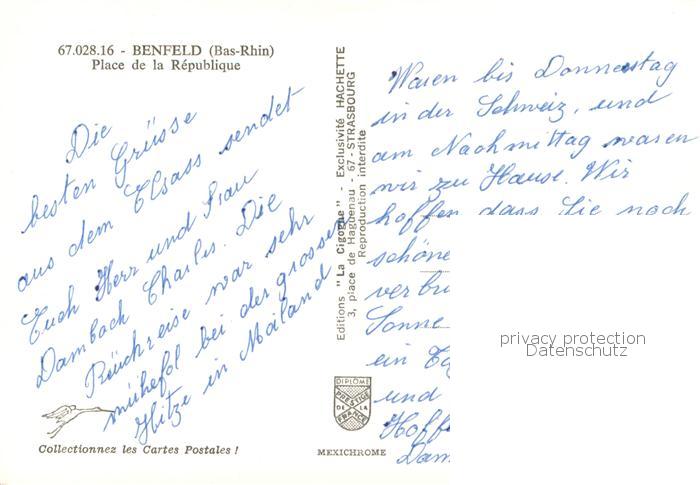 67.028.16 - BENFELD (Bas-Rhin)
Place de la République
Die
besten Grüsse
aus dem Elsass sendet
Euch Herr und Frau
Dambach Charles. Die
Rückreise war sehr
mühefol bei der grossen
Hitze in Mailand
Collectionnez les Cartes Postales !
Editions "La Cigogne" - Exclusivité HACHETTE
3, place de Haguenau - 67 - STRASBOURG
Reproduction interdite
DIPLOME
PRESTIGE
DE LA
FRANCE
MEXICHROME
Waren bis Donnerstag
in der Schweiz, und
am Nachmittag waren
wir zu Hause. Wir
hoffen dass Sie noch
schöne
verbr
Sonne
ein
und
Hoff
Dam
privacy protection
Datenschutz